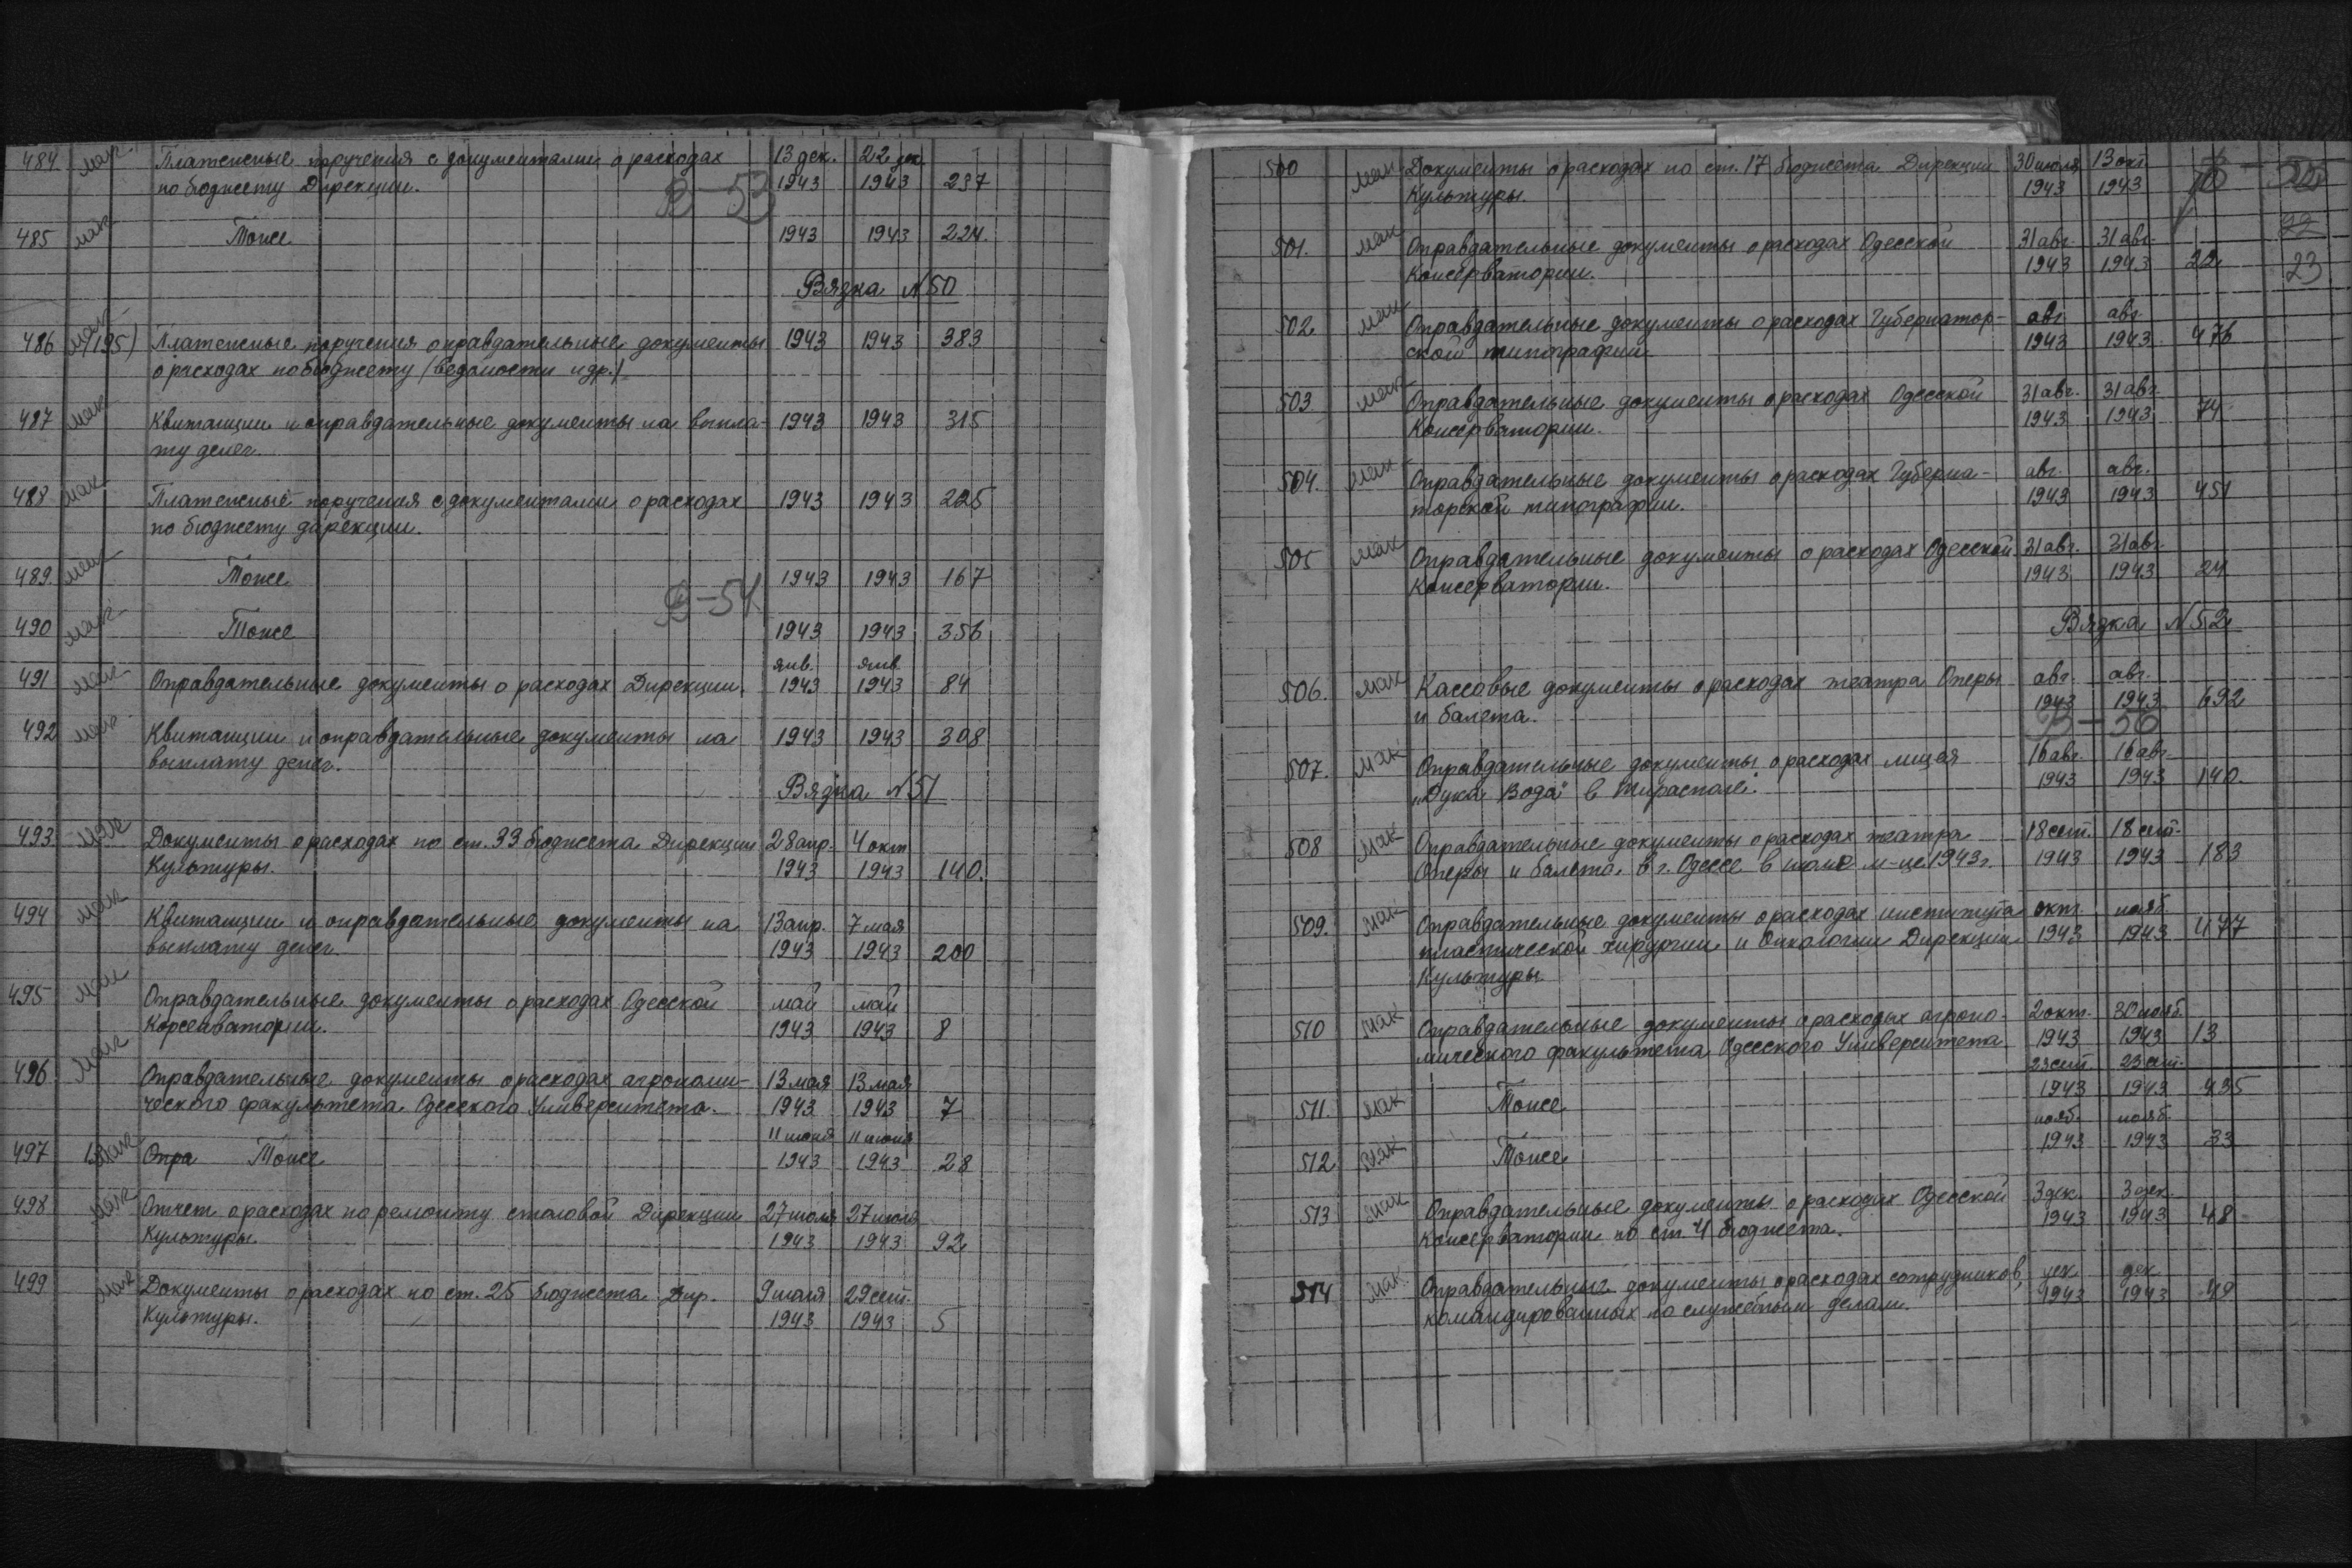 484 мак Платежные поручения с документами о расходах 13 дек. 22 дек.
по бюджету Дирекции. 1943 1943 237
В-53
485 мак Тоже 1943 1943 224.
Вязка №50
486 мак 4/195) Платежные поручения оправдательные документы 1943 1943 383
о расходах по бюджету (ведомости и др.)
487 мак Квитанции и оправдательные документы на выпла- 1943 1943 315
ту денег.
488 мак Платежные поручения с документами о расходах 1943 1943 225
по бюджету дирекции.
489 мак Тоже 1943 1943 167
В-54
490 мак Тоже 1943 1943 356
янв. янв
491 мак Оправдательные документы о расходах Дирекции. 1943 1943 84
492 мак Квитанции и оправдательные документы на 1943 1943 308
выплату денег.
Вязка №51
493 мак Документы о расходах по ст. 33 бюджета Дирекции 28 апр. 4 окт
Культуры. 1943 1943 140.
494 мак Квитанции и оправдательные документы на 13 апр. 7 мая
выплату денег. 1943 1943 200
495 мак Оправдательные документы о расходах Одесской май май
Консерватории. 1943 1943 8
496 мак Оправдательные документы о расходах агрономи- 13 мая 13 мая
ческого факультета Одесского Университета. 1943 1943 7
11 июня 11 июня
497 мак Опра Тоже 1943 1943 28
498 мак Отчет о расходах по ремонту столовой Дирекции 27 июля 27 июля
Культуры. 1943 1943 92
499 мак Документы о расходах по ст. 25 бюджета Дир. 9 июля 29 сент.
Культуры. 1943 1943 5
500 мак Документы о расходах по ст. 17 бюджета Дирекции 30 июля 13 окт
Культуры. 1943 1943
22
501. мак Оправдательные документы о расходах Одесской 31 авг. 31 авг.
Консерватории. 1943 1943 22 23
502 мак Оправдательные документы о расходах Губернатор- авг авг.
ской типографии 1943 1943 476
503 мак Оправдательные документы о расходах Одесской 31 авг. 31 авг.
Консерватории. 1943 1943 74
504. мак Оправдательные документы о расходах Губерна- авг. авг.
торской типографии. 1943 1943 451
505 мак Оправдательные документы о расходах Одесской 31 авг. 31 авг.
Консерватории. 1943 1943 24
Вязка №52
506. мак Кассовые документы о расходах театра Оперы авг. авг.
и балета. 1943 1943 692
В-56
507. мак Оправдательные документы о расходах лицея 16 авг. 16 авг.
„Дука Вода" в Тирасполе. 1943 1943 140.
508 мак Оправдательные документы о расходах театра 18 сент. 18 сент.
Оперы и балета в г. Одессе в июле м-це 1943 г. 1943 1943 183
509. мак Оправдательные документы о расходах института окт. нояб.
пластической хирургии и Онкологии Дирекции 1943 1943 477
Культуры
510 мак Оправдательные документы о расходах агроно- 2 окт. 30 нояб.
мического факультета Одесского Университета 1943 1943 13
23 сент. 23 сент.
511. мак Тоже 1943 1943 435
нояб. нояб.
512 мак Тоже 1943 1943 33
513 мак Оправдательные документы о расходах Одесской 3 дек. 3 дек.
Консерватории по ст. 4 бюджета. 1943 1943 48
514 мак Оправдательные документы о расходах сотрудников, дек дек
командированных по служебным делам. 1943 1943 49